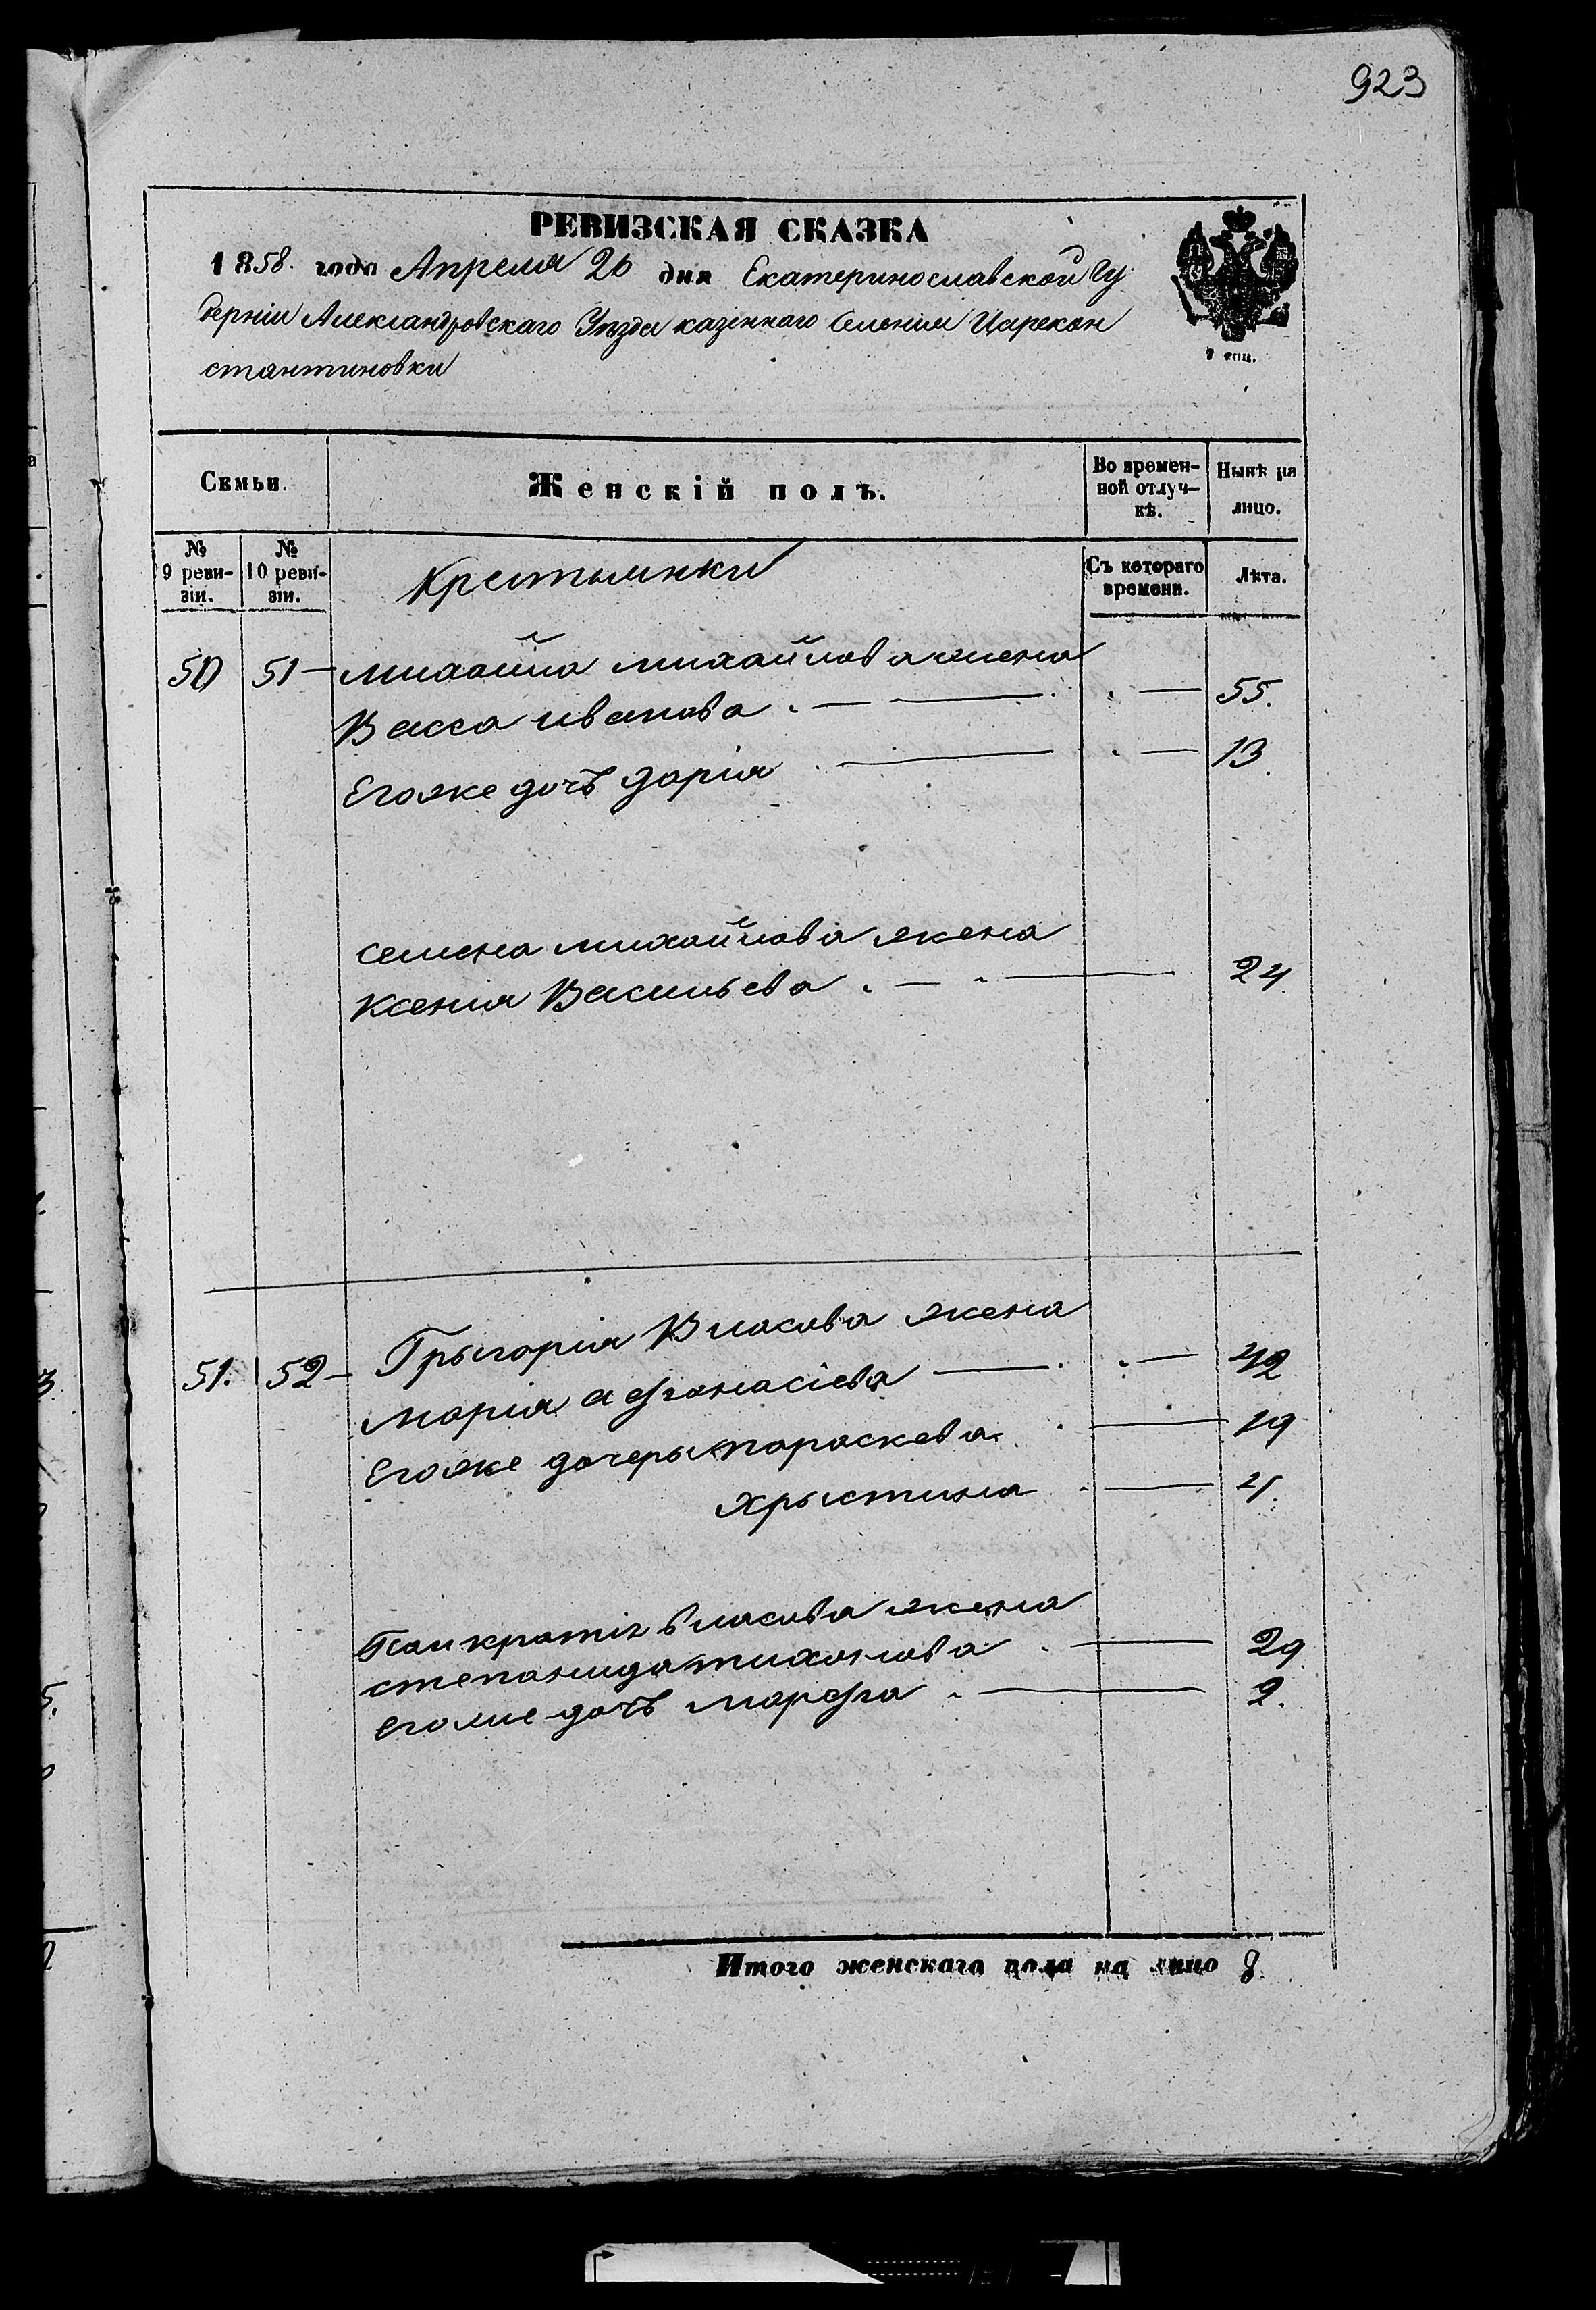 923
РЕВИЗСКАЯ СКАЗКА
1858. года Апреля 26 дня Екатеринославской Гу
берніи Александровскаго Уѣзда казеннаго Селенія Царекон
стантиновки
7 коп.
Семьи.
Женскій полъ.
Во времен-
ной отлуч-
кѣ.
Нынѣ на
лицо.
№ 9 реви-
зіи.
№ 10 реви-
зіи.
Крестьянки
Съ котораго
времени.
Лѣта.
50 51 – михайла михайлова жена
Васса иванова . — — . — 55.
Егоже дочь дарія . — . — 13.
семена михайлова жена
Ксенія Васильева . — . — 24.
51. 52 – Грыгорія Власова жена
марія афанасіева — . . — 42
Егоже дочеры параскева . — 19
хрыстина . — 4.
Панкратія власова жена
степанида тихонова . — 29.
егоже дочь марфа . — 2.
Итого женскаго пола на лицо 8.